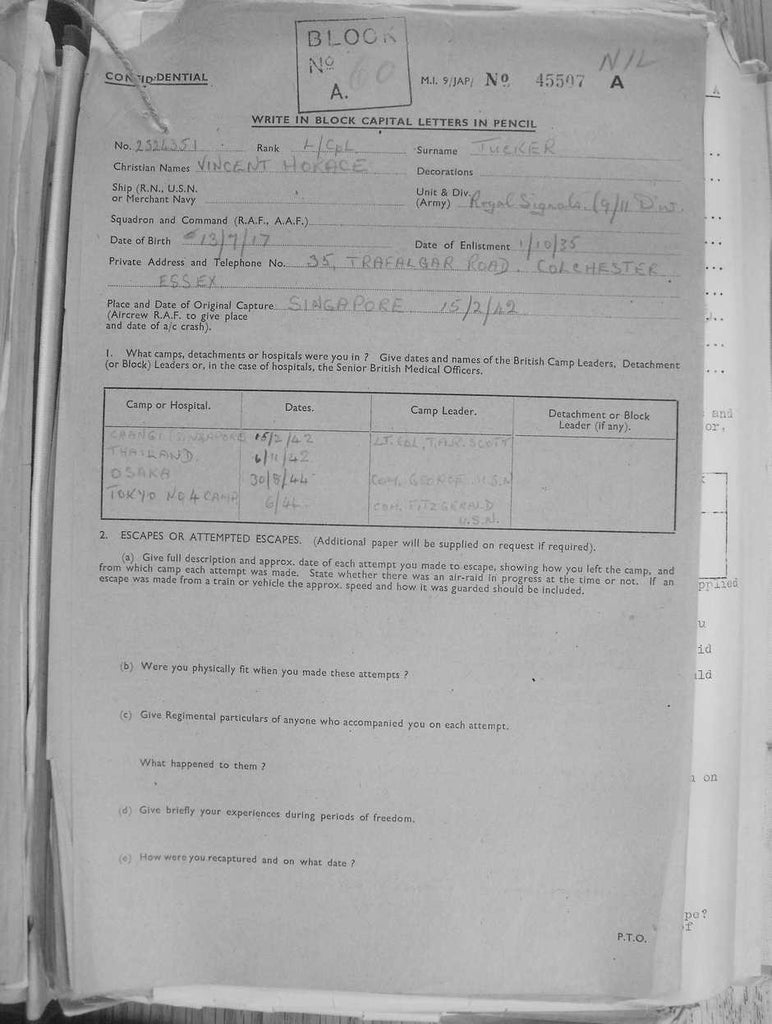 BLOCK
No 60
A.
NIL
CONFIDENTIAL
M.I. 9/JAP/ No 45507 A
WRITE IN BLOCK CAPITAL LETTERS IN PENCIL
No. 2324351 Rank L/CPL Surname TUCKER
Christian Names VINCENT HORACE Decorations
Ship (R.N., U.S.N. or Merchant Navy
Unit & Div. (Army) Royal Signals. (9/11 Div.
Squadron and Command (R.A.F., A.A.F.)
Date of Birth 13/7/17 Date of Enlistment 1/10/35
Private Address and Telephone No. 35, TRAFALGAR ROAD. COLCHESTER
ESSEX
Place and Date of Original Capture SINGAPORE 15/2/42
(Aircrew R.A.F. to give place
and date of a/c crash).
1. What camps, detachments or hospitals were you in ? Give dates and names of the British Camp Leaders, Detachment
(or Block) Leaders or, in the case of hospitals, the Senior British Medical Officers.
Camp or Hospital. Dates. Camp Leader. Detachment or Block
Leader (if any).
CHANGI SINGAPORE 15/2/42 LT. COL. T.A.R. SCOTT
THAILAND. 6/11/42
OSAKA 30/8/44 COM. GEORGE U.S.N
TOKYO NO 4 CAMP 6/44 COM. FITZGERALD
U.S.N.
2. ESCAPES OR ATTEMPTED ESCAPES. (Additional paper will be supplied on request if required).
(a) Give full description and approx. date of each attempt you made to escape, showing how you left the camp, and
from which camp each attempt was made. State whether there was an air-raid in progress at the time or not. If an
escape was made from a train or vehicle the approx. speed and how it was guarded should be included.
(b) Were you physically fit when you made these attempts ?
(c) Give Regimental particulars of anyone who accompanied you on each attempt.
What happened to them ?
(d) Give briefly your experiences during periods of freedom.
(e) How were you recaptured and on what date ?
P.T.O.